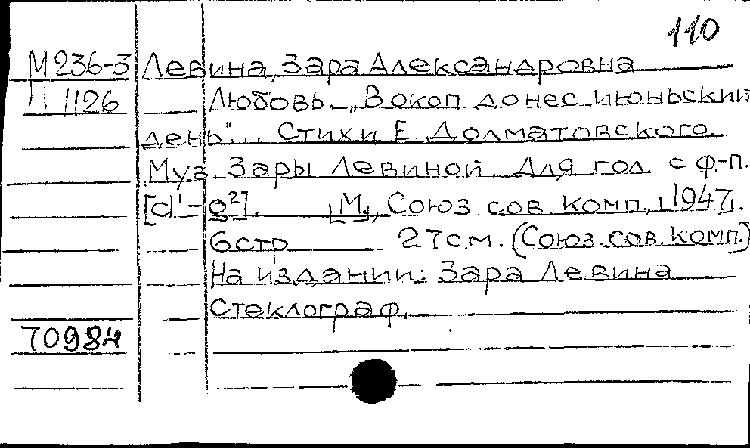 110
М 236-3 Левина, Зара Александровна
1126 Любовь. „В окоп донес июньский
день"... Стихи Е. Долматовского.
Муз. Зары Левиной. Для гол. с ф.-п.
[d¹-g²]. [М.], Союз сов. комп., [1947].
6 стр. 27 см. (Союз. сов. комп.)
На издании: Зара Левина
Стеклограф.
70984